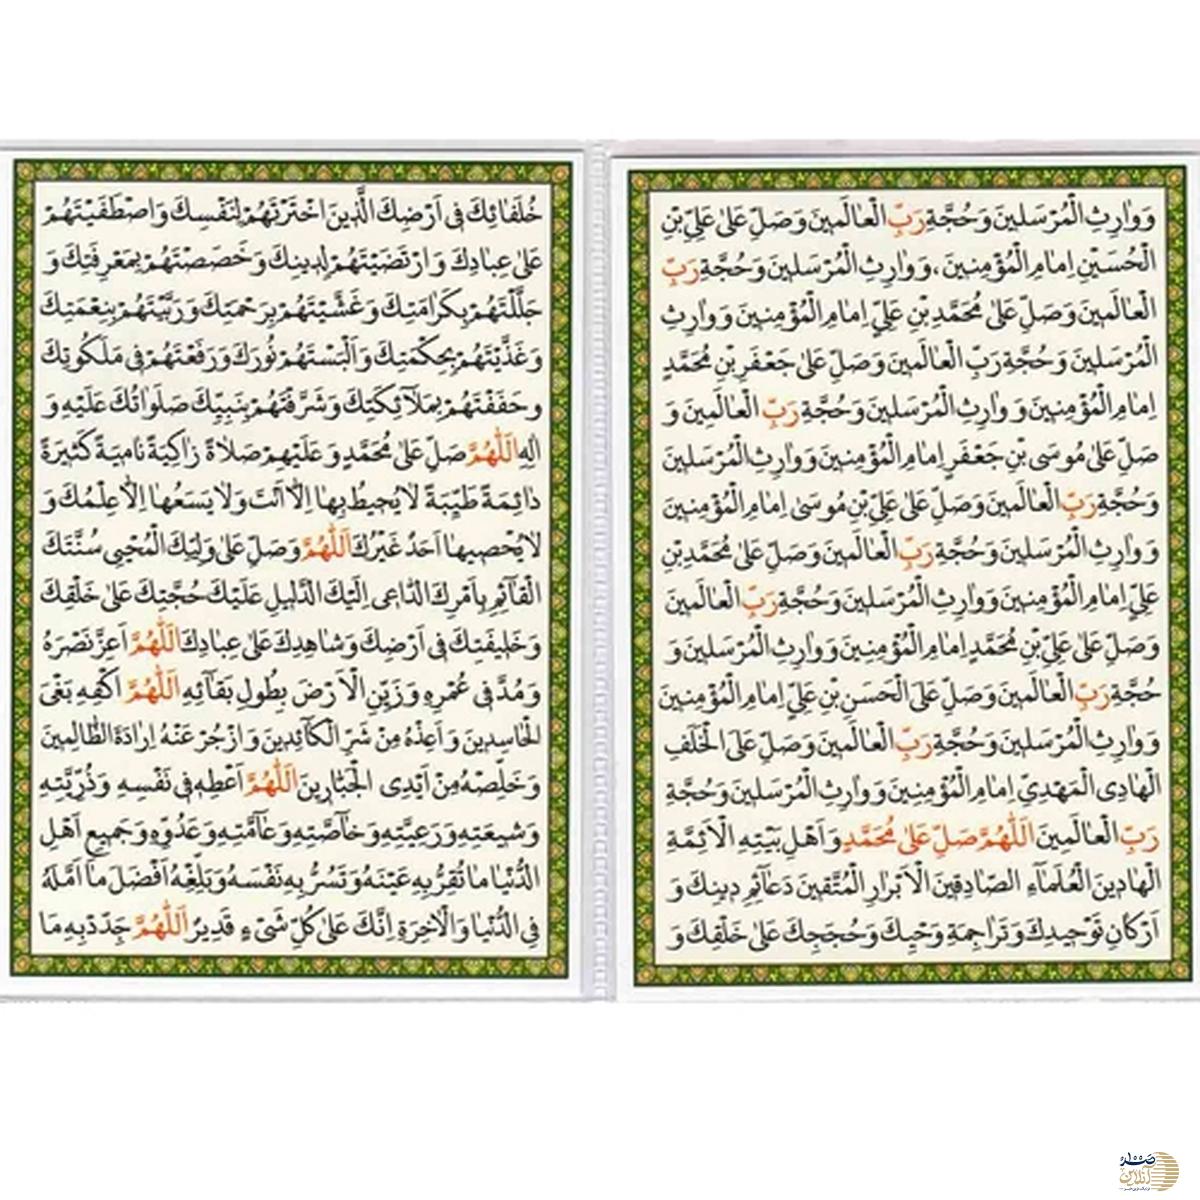 وَ وَارِثِ الْمُرْسَلِينَ وَ حُجَّةِ رَبِّ الْعَالَمِينَ وَ صَلِّ عَلَىٰ عَلِيِّ بْنِ
الْحُسَيْنِ اِمَامِ الْمُؤْمِنِينَ، وَ وَارِثِ الْمُرْسَلِينَ وَ حُجَّةِ رَبِّ
الْعَالَمِينَ وَ صَلِّ عَلىٰ مُحَمَّدِ بْنِ عَلِيٍّ اِمَامِ الْمُؤْمِنِينَ وَ وَارِثِ
الْمُرْسَلِينَ وَ حُجَّةِ رَبِّ الْعَالَمِينَ وَ صَلِّ عَلىٰ جَعْفَرِ بْنِ مُحَمَّدٍ
اِمَامِ الْمُؤْمِنِينَ وَ وَارِثِ الْمُرْسَلِينَ وَ حُجَّةِ رَبِّ الْعَالَمِينَ وَ
صَلِّ عَلىٰ مُوسَى بْنِ جَعْفَرٍ اِمَامِ الْمُؤْمِنِينَ وَ وَارِثِ الْمُرْسَلِينَ
وَ حُجَّةِ رَبِّ الْعَالَمِينَ وَ صَلِّ عَلىٰ عَلِيِّ بْنِ مُوسَىٰ اِمَامِ الْمُؤْمِنِينَ
وَ وَارِثِ الْمُرْسَلِينَ وَ حُجَّةِ رَبِّ الْعَالَمِينَ وَ صَلِّ عَلىٰ مُحَمَّدِ بْنِ
عَلِيٍّ اِمَامِ الْمُؤْمِنِينَ وَ وَارِثِ الْمُرْسَلِينَ وَ حُجَّةِ رَبِّ الْعَالَمِينَ
وَ صَلِّ عَلىٰ عَلِيِّ بْنِ مُحَمَّدٍ اِمَامِ الْمُؤْمِنِينَ وَ وَارِثِ الْمُرْسَلِينَ وَ
حُجَّةِ رَبِّ الْعَالَمِينَ وَ صَلِّ عَلَى الْحَسَنِ بْنِ عَلِيٍّ اِمَامِ الْمُؤْمِنِينَ
وَ وَارِثِ الْمُرْسَلِينَ وَ حُجَّةِ رَبِّ الْعَالَمِينَ وَ صَلِّ عَلَى الْخَلَفِ
الْهَادِي الْمَهْدِيِّ اِمَامِ الْمُؤْمِنِينَ وَ وَارِثِ الْمُرْسَلِينَ وَ حُجَّةِ
رَبِّ الْعَالَمِينَ اَللّٰهُمَّ صَلِّ عَلىٰ مُحَمَّدٍ وَ اَهْلِ بَيْتِهِ الْاَئِمَّةِ
الْهَادِينَ الْعُلَمَاءِ الصَّادِقِينَ الْاَبْرَارِ الْمُتَّقِينَ دَعَائِمِ دِينِكَ وَ
اَرْكَانِ تَوْحِيدِكَ وَ تَرَاجِمَةِ وَحْيِكَ وَ حُجَجِكَ عَلىٰ خَلْقِكَ وَ
خُلَفَائِكَ فِي اَرْضِكَ الَّذِينَ اخْتَرْتَهُمْ لِنَفْسِكَ وَ اصْطَفَيْتَهُمْ
عَلىٰ عِبَادِكَ وَ ارْتَضَيْتَهُمْ لِدِينِكَ وَ خَصَصْتَهُمْ بِمَعْرِفَتِكَ وَ
جَلَّلْتَهُمْ بِكَرَامَتِكَ وَ غَشَّيْتَهُمْ بِرَحْمَتِكَ وَ رَبَّيْتَهُمْ بِنِعْمَتِكَ
وَ غَذَّيْتَهُمْ بِحِكْمَتِكَ وَ اَلْبَسْتَهُمْ نُورَكَ وَ رَفَعْتَهُمْ فِي مَلَكُوتِكَ
وَ حَفَفْتَهُمْ بِمَلَآئِكَتِكَ وَ شَرَّفْتَهُمْ بِنَبِيِّكَ صَلَوَاتُكَ عَلَيْهِ وَ
اٰلِهِ اَللّٰهُمَّ صَلِّ عَلىٰ مُحَمَّدٍ وَ عَلَيْهِمْ صَلَاةً زَاكِيَةً نَامِيَةً كَثِيرَةً
دَائِمَةً طَيِّبَةً لَا يُحِيطُ بِهَا اِلَّا اَنْتَ وَ لَا يَسَعُهَا اِلَّا عِلْمُكَ وَ
لَا يُحْصِيهَا اَحَدٌ غَيْرُكَ اَللّٰهُمَّ وَ صَلِّ عَلىٰ وَلِيِّكَ الْمُحْيِي سُنَّتَكَ
الْقَآئِمِ بِاَمْرِكَ الدَّاعِي اِلَيْكَ الدَّلِيلِ عَلَيْكَ حُجَّتِكَ عَلىٰ خَلْقِكَ
وَ خَلِيفَتِكَ فِي اَرْضِكَ وَ شَاهِدِكَ عَلىٰ عِبَادِكَ اَللّٰهُمَّ اَعِزَّ نَصْرَهُ
وَ مُدَّ فِي عُمْرِهِ وَ زَيِّنِ الْاَرْضَ بِطُولِ بَقَآئِهِ اَللّٰهُمَّ اكْفِهِ بَغْيَ
الْحَاسِدِينَ وَ اَعِذْهُ مِنْ شَرِّ الْكَآئِدِينَ وَ ازْجُرْ عَنْهُ اِرَادَةَ الظَّالِمِينَ
وَ خَلِّصْهُ مِنْ اَيْدِي الْجَبَّارِينَ اَللّٰهُمَّ اَعْطِهِ فِي نَفْسِهِ وَ ذُرِّيَّتِهِ
وَ شِيعَتِهِ وَ رَعِيَّتِهِ وَ خَآصَّتِهِ وَ عَآمَّتِهِ وَ عَدُوِّهِ وَ جَمِيعِ اَهْلِ
الدُّنْيَا مَا تُقِرُّ بِهِ عَيْنَهُ وَ تَسُرُّ بِهِ نَفْسَهُ وَ بَلِّغْهُ اَفْضَلَ مَا اَمَّلَهُ
فِي الدُّنْيَا وَ الْاٰخِرَةِ اِنَّكَ عَلىٰ كُلِّ شَيْءٍ قَدِيرٌ اَللّٰهُمَّ جَدِّدْ بِهِ مَا
صدر
آنلاین